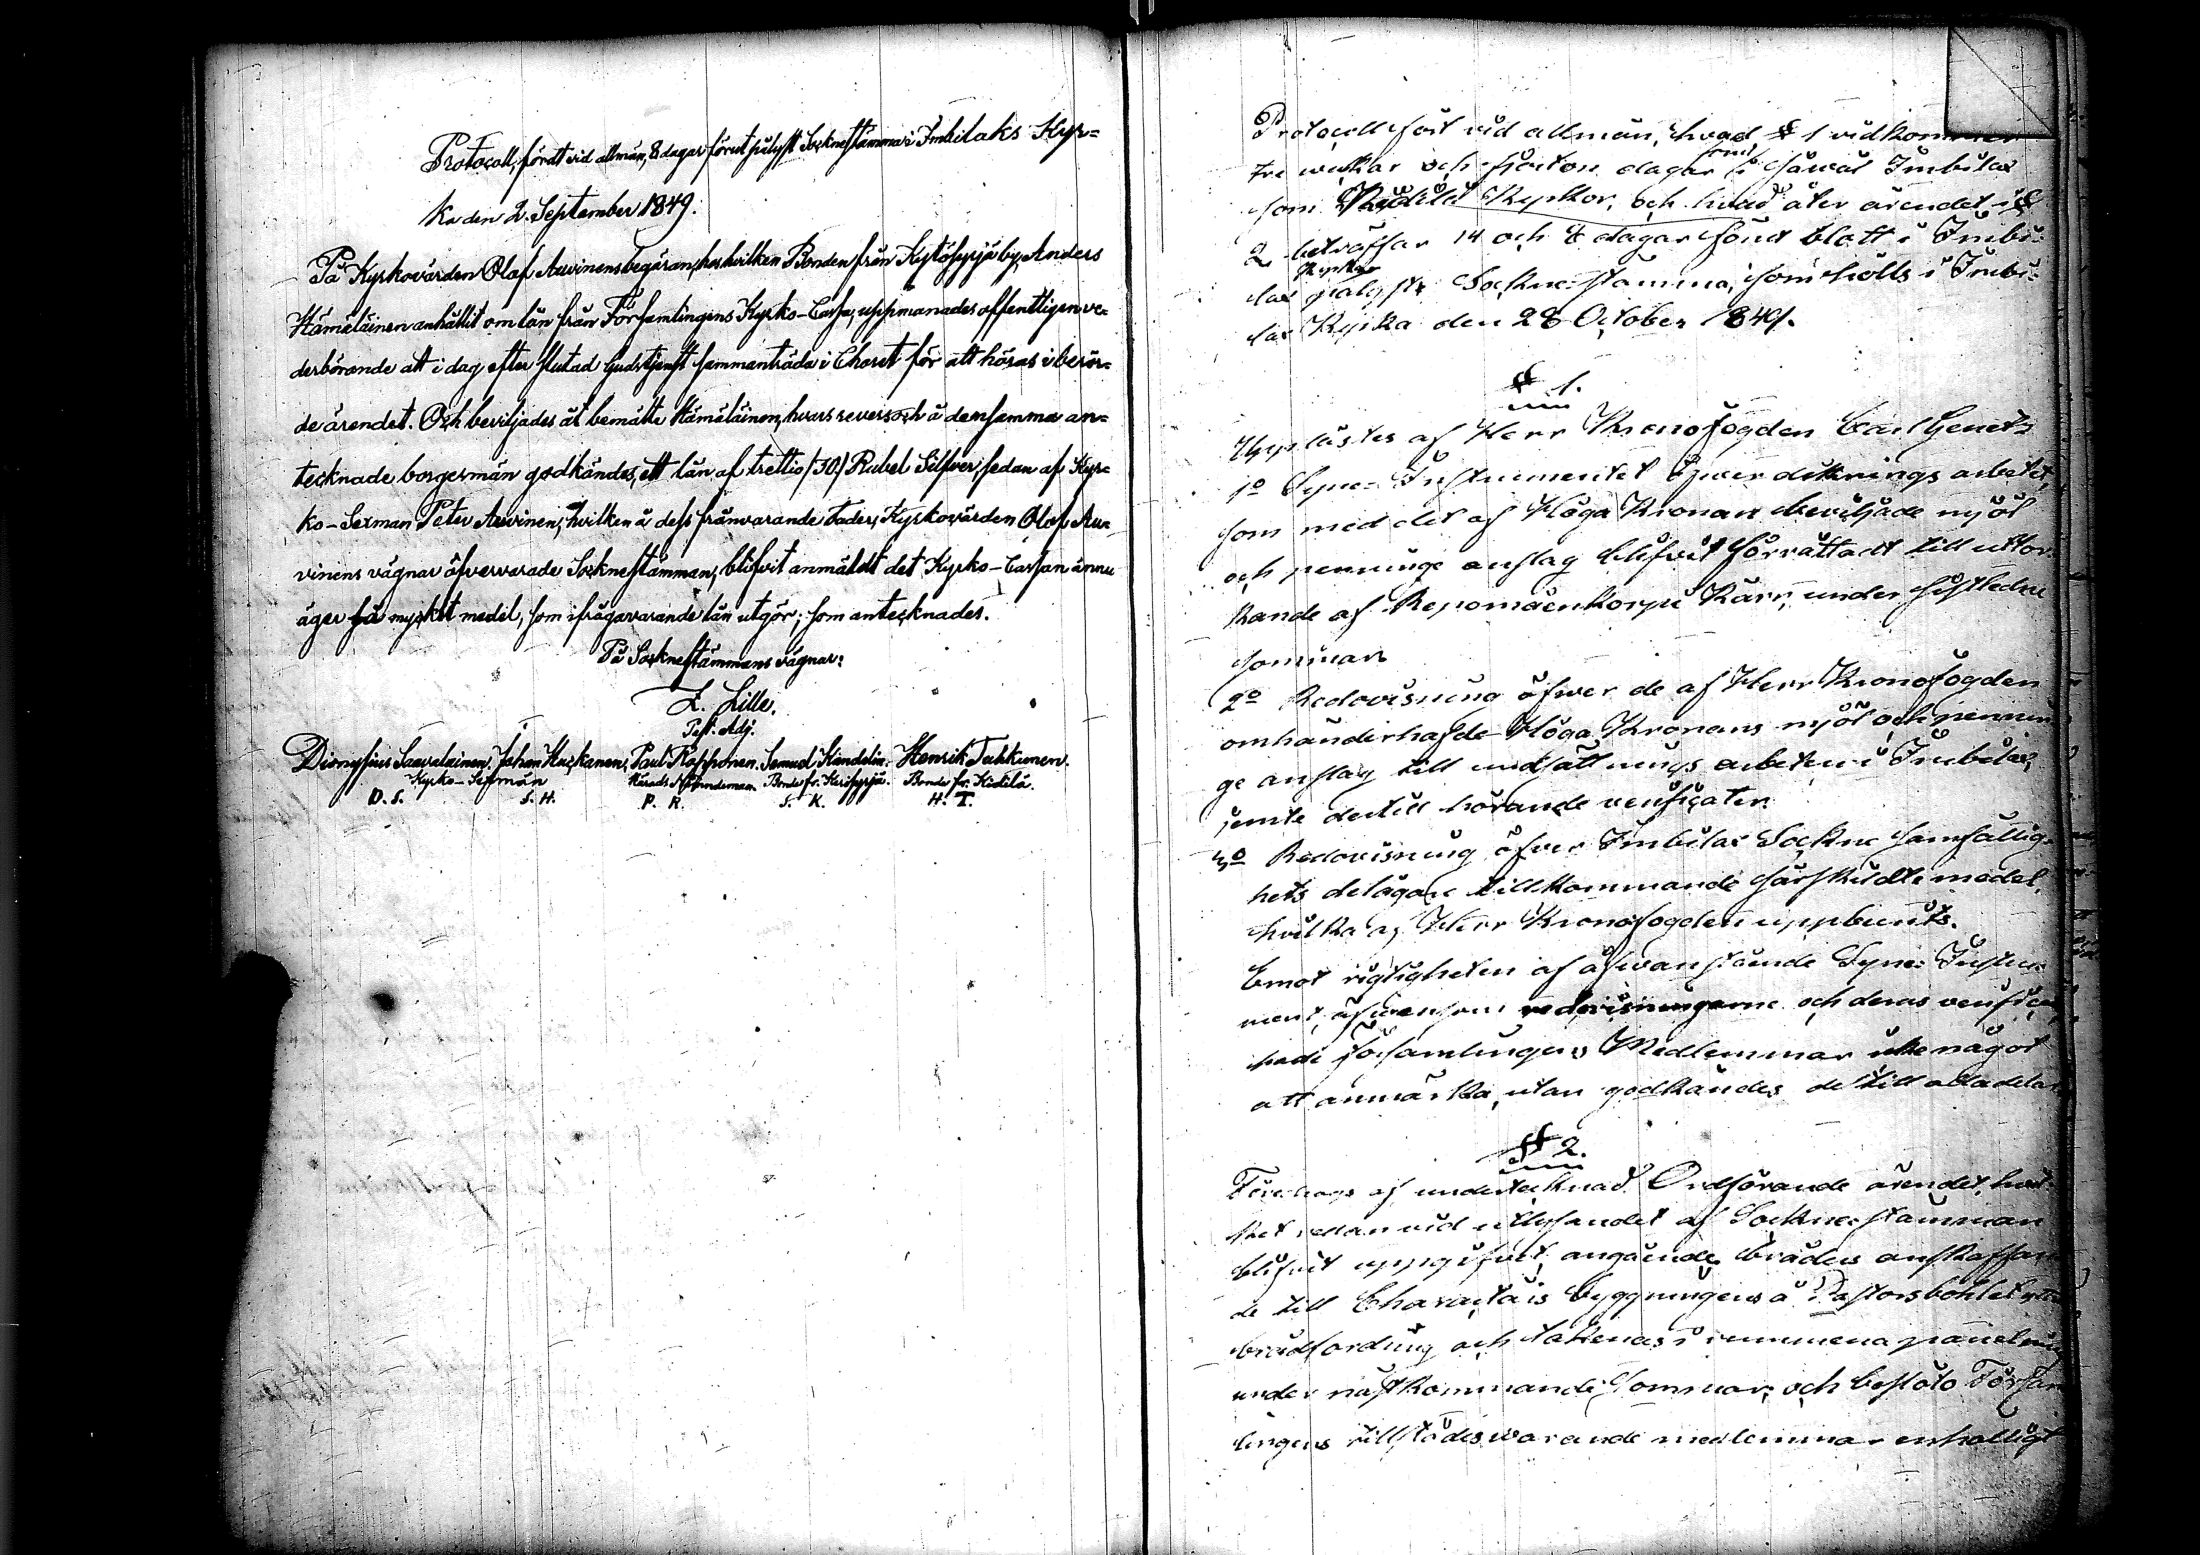 Protocoll, fördt vid allmän, 8 dagar förut pålyst Sockneſtämma i Imbilaks Kyr=
ka den 2. September 1849.
På Kyrkovärden Olof Auvinens begäran, hos hvilken Bonden från Kytösyrjä by, Anders
Hämäläinen anhållit om lån från Församlingens Kyrko-Caſsa, uppmanades offentligen ve=
derbörande att i dag efter slutad Gudstjenst sammanträda i Choret för att höras i berör=
de ärendet. Och beviljades åt bemälte Hämäläinen, hvars revers och å densamma an=
tecknade borgesmän godkändes, ett lån af trettio /30/ Rubel Silfver, sedan af Kyr=
ko-Sexman Peter Auvinen, hvilken å deſs frånvarande Faders, Kyrkovärden Olof Au=
vinens vägnar öfvervarade Sockneſtämman, blifvit anmäldt det Kyrko-Caſsan ännu
äger så mycket medel, som ifrågavarande lån utgör; som antecknades.
På Sockneſtämmans vägnar:
Z. Lille.
Past. Adj.
Dionysius Saavalainen. Johan Huckanen. Paul Rapponen. Samuel Kandelin. Henrik Tuhkunen.
Kyrko-Sexmän Härads Nämndeman. Bonde fr. Bonde fr. Kitilä.
D. S. J. H. P. R. S. K. H. T.
Protocoll fört vid allmän, hvad § 1 vidkommer
tre weckor och fjorton dagar förut i såwäl Imbilax
som Kyrkor, och hvad åter ärendet i §
2 beträffar 14 och 8 dagar förut blott i Imbi=
lax Kyrka pålyst Sockne=stämma, som hölls i Imbi=
lax Kyrka den 28 October 1849.
§ 1.
Upplästes af Herr Kronofogden Carl Genetz
1o Syne=Instrumentet öfwer diknings arbetet,
som med det af Höga Kronan beviljade mjöl
och penninge anslag blifvit förrättadt till uttor=
kande af Repomäenkorpi Kärr, under sistledne
sommar.
2o Redovisning öfwer de af Herr Kronofogden
omhänderhafde Höga Kronans mjöl och pennin
ge anslag till undsättnings arbeten i Imbilax,
jemte dertill hörande verificater.
3o Redovisning öfver Imbilax Sockne samfällig=
hets delägare tillkommande särskildte medel,
hvilka af Herr Kronofogden uppburits.
Emot rigtigheten af ofwanstående Syne=Instru=
ment, äfwensom redovisningarne och deras verifica
hade Församlingens Medlemmar icke något
att anmärka, utan godkändes de till alla delar.
§ 2.
Föredrogs af undertecknad Ordförande ärendet, hvil
ket redan vid utlysandet af Sockne=stämman
blifvit uppgifvet, angående bräders anskaffan
de till Charactärs byggningens å Pastorsbohlet
brädfordring och i rummena panelning
under nästkommande Sommar; och beslöto Försam
lingens tillstädeswarande medlemmar enhälligt